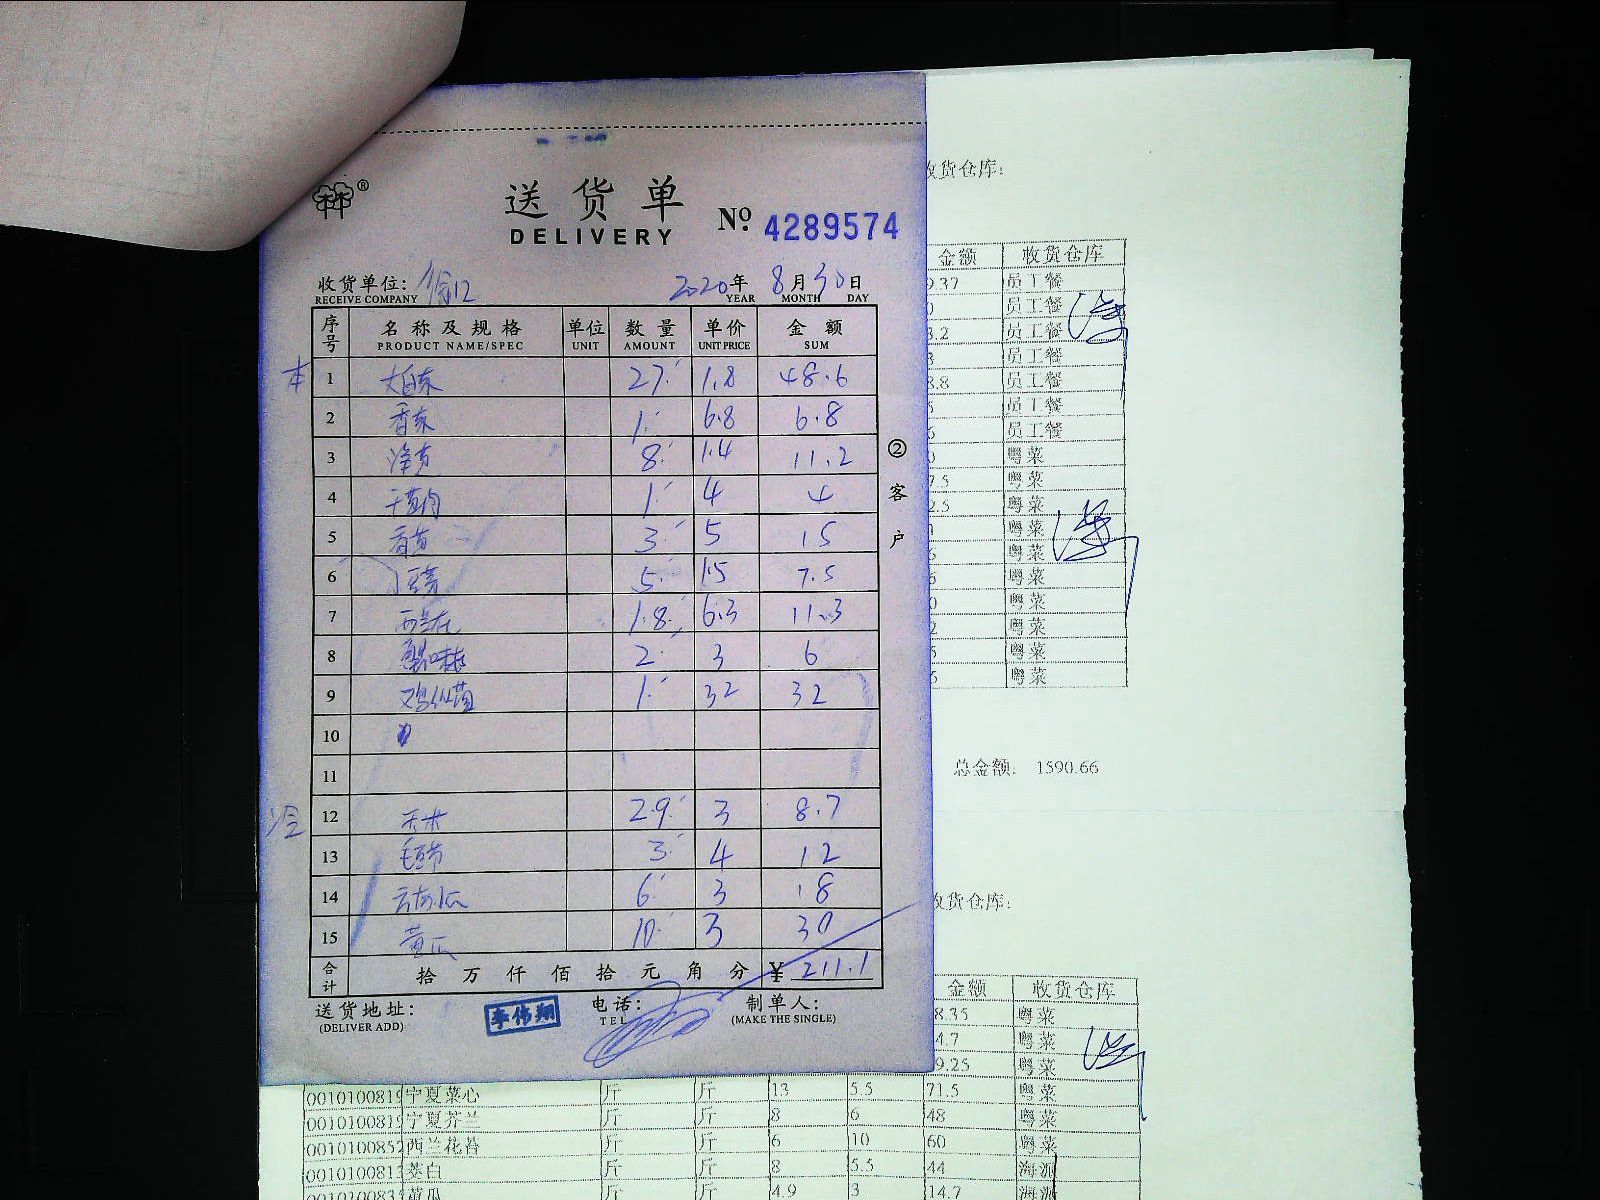 送货单
DELIVERY
№. 4289574
收货单位:
RECEIVE COMPANY
2020年 8月30日
YEAR MONTH DAY
序号 名称及规格 单位 数量 单价 金额
PRODUCT NAME/SPEC UNIT AMOUNT UNIT PRICE SUM
本
1 大白菜 27. 1.8 48.6
2 香菜 1. 6.8 6.8
3 8. 1.4 11.2
4 1 4 4
5 3 5 15
6 5. 1.5 7.5
7 西兰花 1.8. 6.3 11.3
8 蟹味菇 2 3 6
9 1. 32 32
10
11
冷
12 2.9 3 8.7
13 毛豆节 3 4 12
14 6 3 18
15 黄瓜 10 3 30
合计 拾万仟佰拾元角分 ¥ 211.1
② 客户
送货地址:
(DELIVER ADD)
李伟翔
电话:
TEL
制单人:
(MAKE THE SINGLE)
收货仓库:
金额 收货仓库
9.37 员工餐
员工餐
3.2 员工餐
员工餐
8.8 员工餐
员工餐
员工餐
粤菜
7.5 粤菜
2.5 粤菜
粤菜
粤菜
粤菜
粤菜
粤菜
粤菜
粤菜
总金额: 1590.66
收货仓库:
金额 收货仓库
8.35 粤菜
4.7 粤菜
9.25 粤菜
001010081 宁夏菜心 斤 斤 13 5.5 71.5 粤菜
001010081 宁夏芥兰 斤 斤 8 6 48 粤菜
001010085 西兰花苔 斤 斤 6 10 60 粤菜
001010081 茭白 斤 斤 8 5.5 44 海派
001010083 黄瓜 斤 斤 4.9 3 14.7 海派